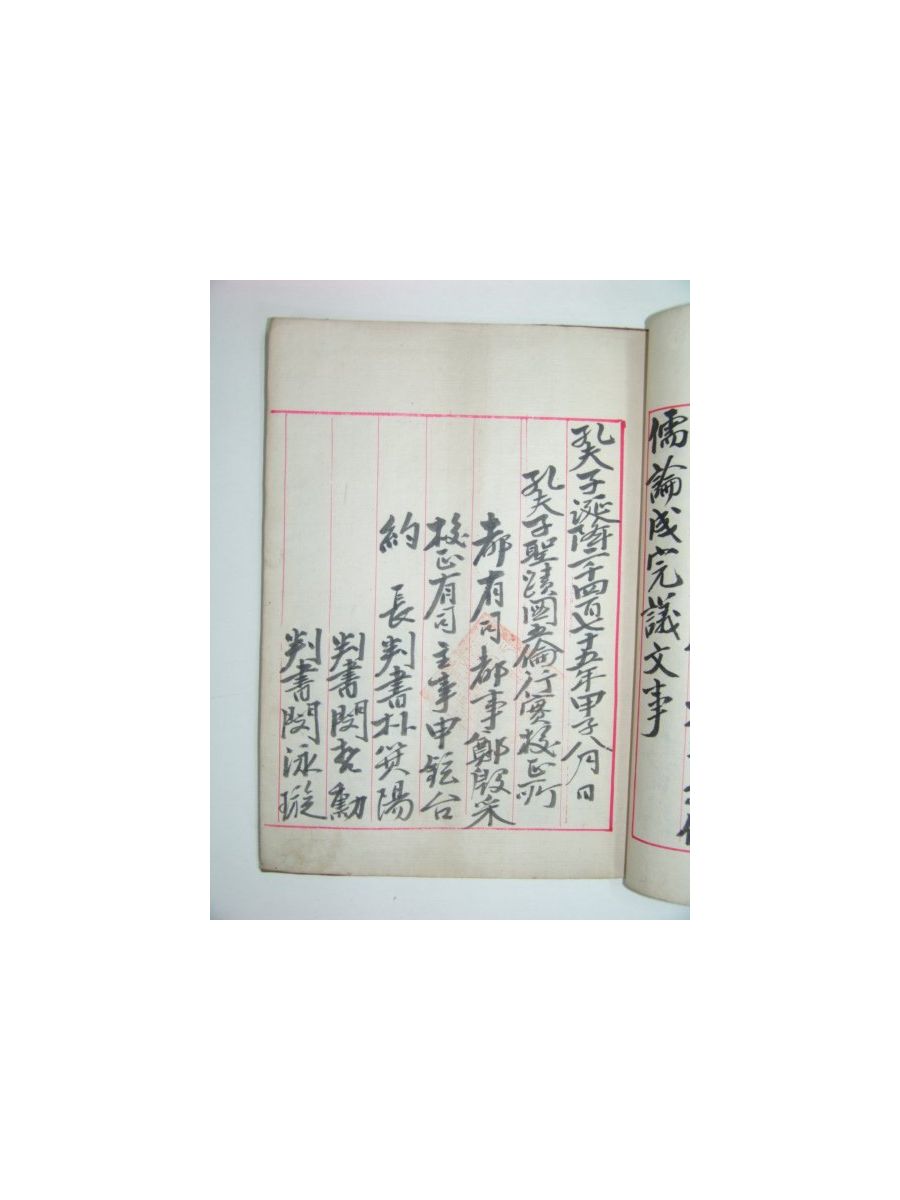 儒論成完議文事
孔夫子誕降二千四百七十五年甲子八月 日
孔夫子聖蹟圖五倫行實校正所
都有司 都事 鄭殷采
校正有司 主事 申鉉台
約長 判書 朴箕陽
判書 閔哲勳
判書 閔泳璇